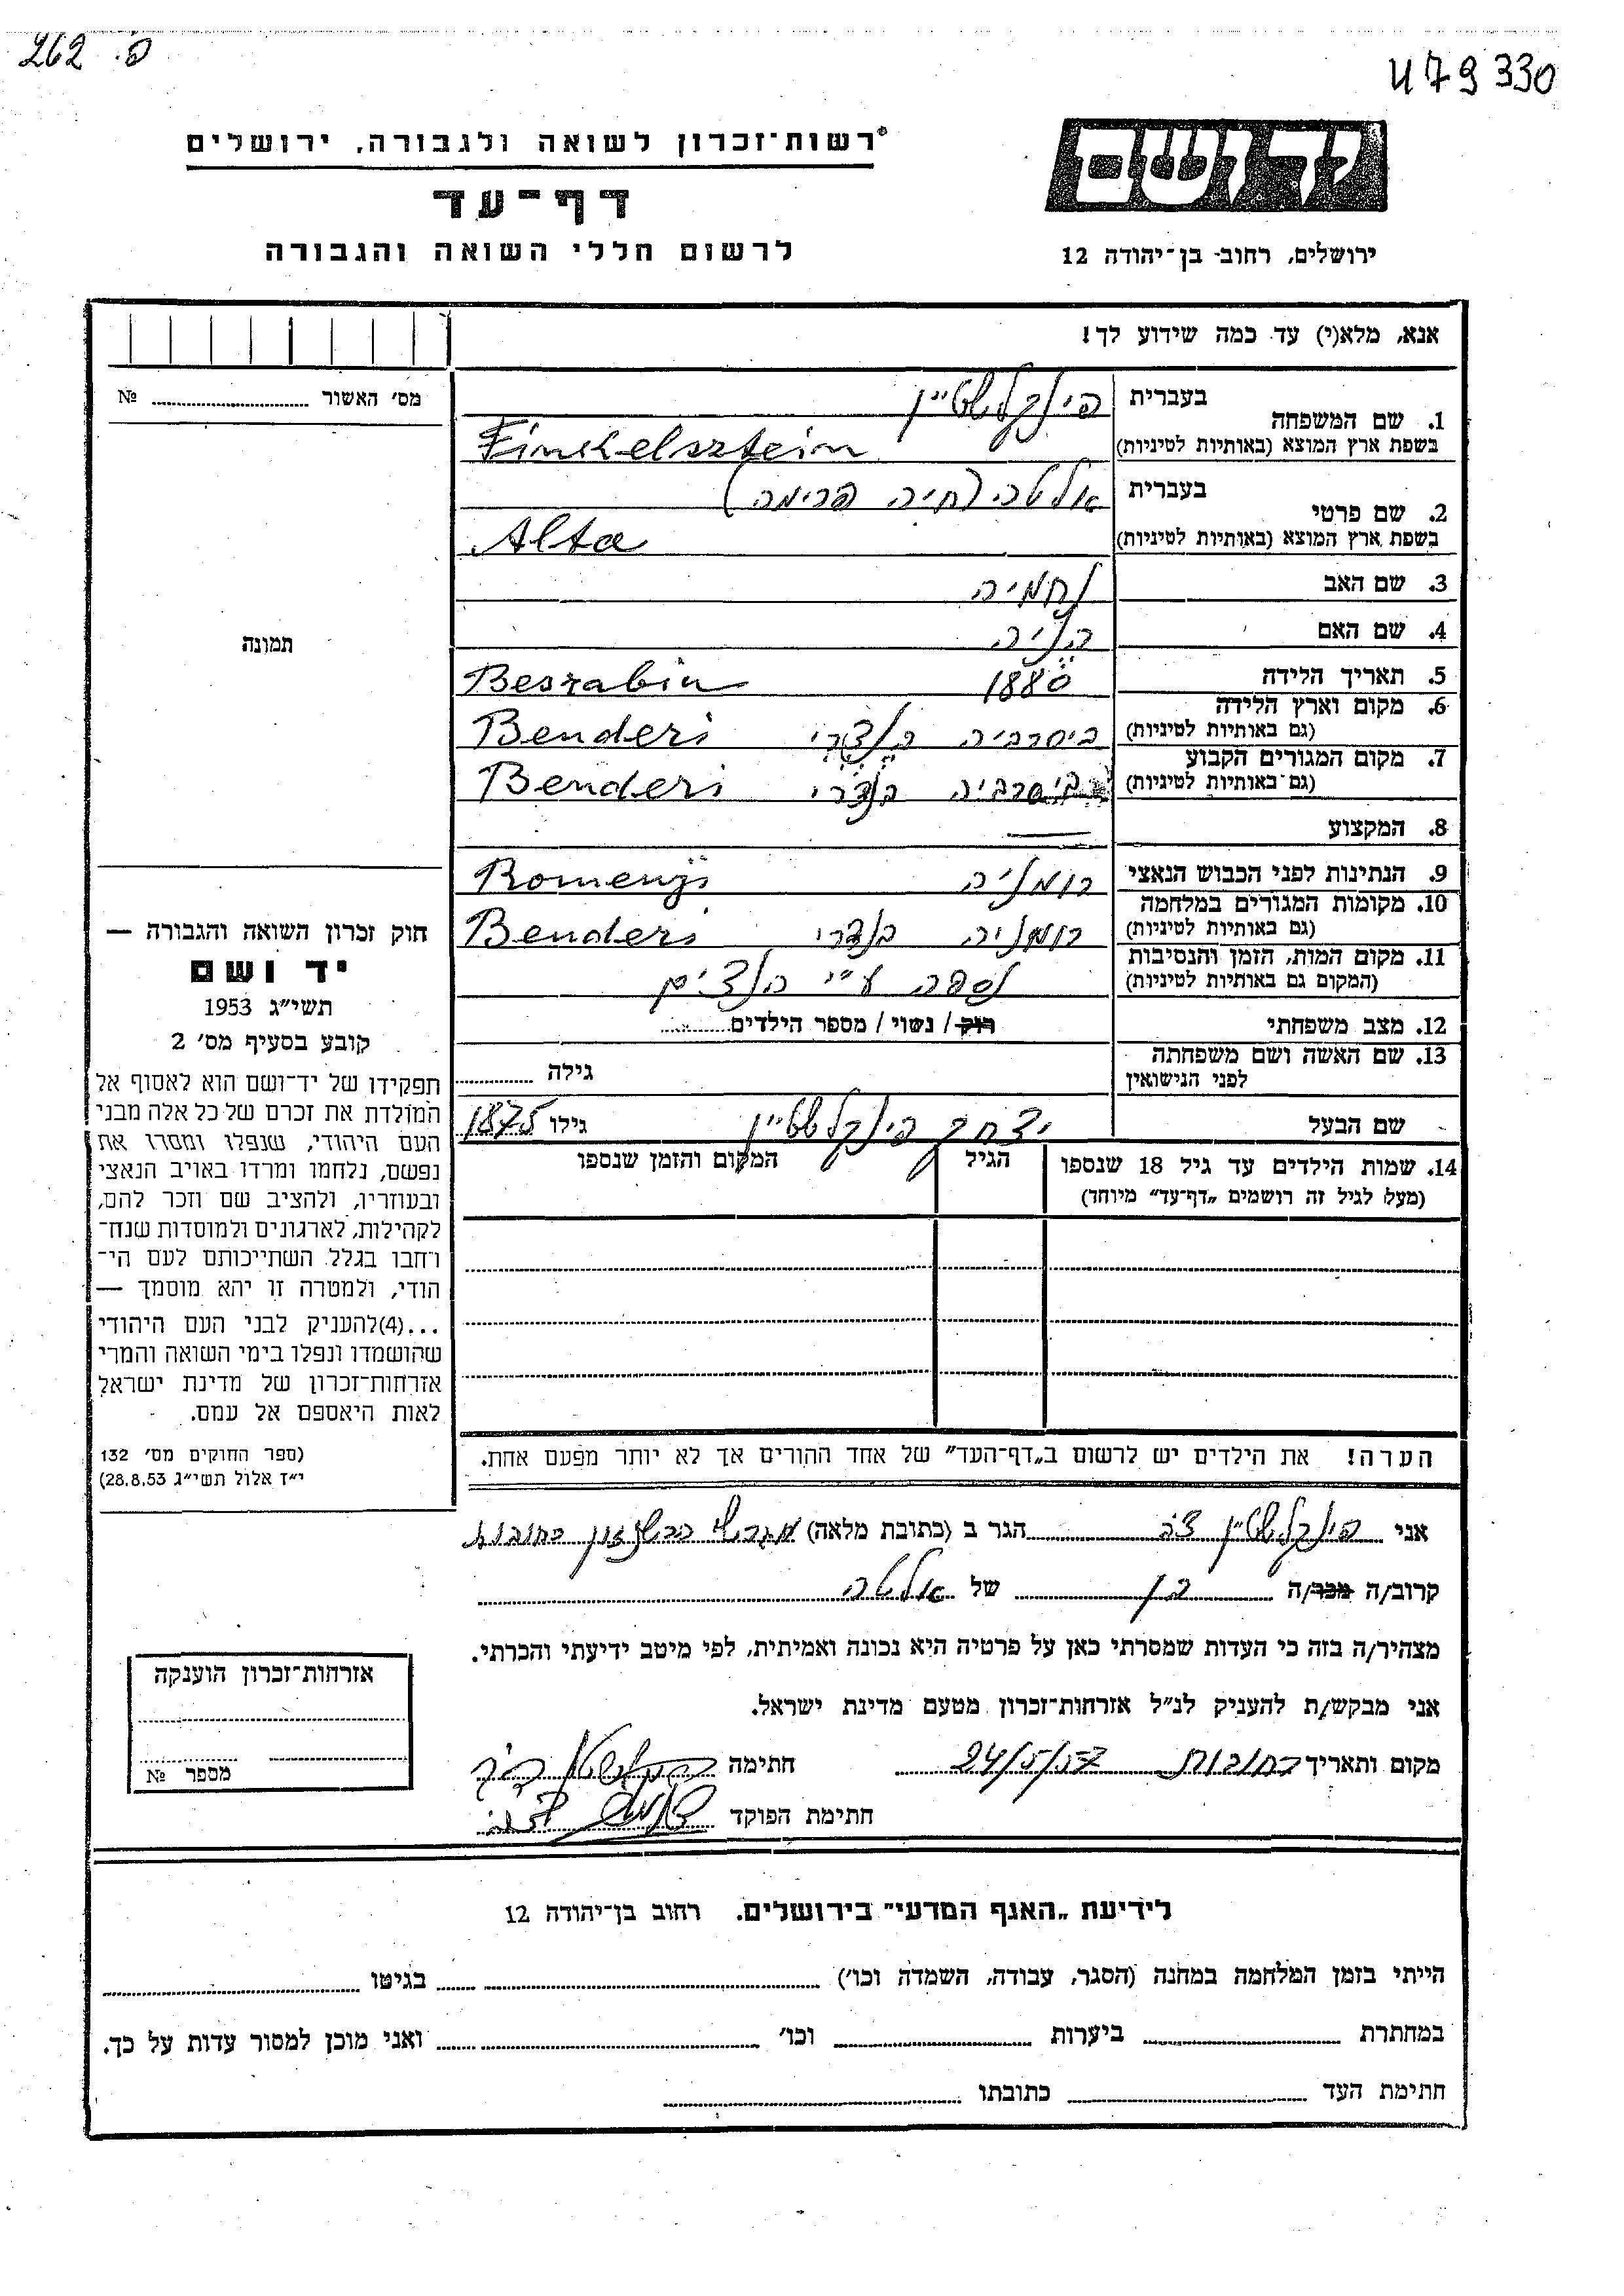 262 .פ
479330
רשות-זכרון לשואה ולגבורה, ירושלים
יד ושם
דף-עד
לרשום חללי השואה והגבורה
ירושלים, רחוב בן-יהודה 12
אנא, מלא(י) עד כמה שידוע לך!
מס' האשור № 
1. שם המשפחה בעברית פינקלשטיין
בשפת ארץ המוצא (באותיות לטיניות) Finckelsztein
2. שם פרטי בעברית אלטה (חיה פרימה)
בשפת ארץ המוצא (באותיות לטיניות) Alta
3. שם האב נחמיה
4. שם האם
תמונה
5. תאריך הלידה 1880 Besrabia
6. מקום וארץ הלידה ביסרביה בנדרי Benderi
(גם באותיות לטיניות)
7. מקום המגורים הקבוע ביסרביה בנדרי Benderi
(גם באותיות לטיניות)
8. המקצוע —
9. הנתינות לפני הכבוש הנאצי רומניה
10. מקומות המגורים במלחמה רומניה בנדרי Benderi
(גם באותיות לטיניות)
11. מקום המות, הזמן והנסיבות נספה ע"י הנצים
(המקום גם באותיות לטיניות)
12. מצב משפחתי רוק / נשוי / מספר הילדים
13. שם האשה ושם משפחתה לפני הנישואין גילה
שם הבעל יצחק פינקלשטיין גילו 1875
14. שמות הילדים עד גיל 18 שנספו הגיל המקום והזמן שנספו
(מעל לגיל זה רושמים „דף-עד" מיוחד)
חוק זכרון השואה והגבורה —
יד ושם
תשי"ג 1953
קובע בסעיף מס' 2
תפקידו של יד-ושם הוא לאסוף אל
המולדת את זכרם של כל אלה מבני
העם היהודי, שנפלו ומסרו את
נפשם, נלחמו ומרדו באויב הנאצי
ובעוזריו, ולהציב שם וזכר להם,
לקהילות, לארגונים ולמוסדות שנח-
רחבו בגלל השתייכותם לעם הי-
הודי, ולמטרה זו יהא מוסמך —
...(4)להעניק לבני העם היהודי
שהושמדו ונפלו בימי השואה והמרי
אזרחות-זכרון של מדינת ישראל
לאות היאספם אל עמם.
(ספר החוקים מס' 132
י"ד אלול תשי"ג 28.8.53)
הערה! את הילדים יש לרשום ב„דף-העד" של אחד ההורים אך לא יותר מפעם אחת.
אני פינקלשטיין הגר ב (כתובת מלאה) רחובות
קרוב/ה מכר/ה בן של אלטה
מצהיר/ה בזה כי העדות שמסרתי כאן על פרטיה היא נכונה ואמיתית, לפי מיטב ידיעתי והכרתי.
אני מבקש/ת להעניק לנ"ל אזרחות-זכרון מטעם מדינת ישראל.
מקום ותאריך רחובות 24/5/57 חתימה
חתימת הפוקד
אזרחות-זכרון הוענקה
מספר №
לידיעת „האגף המדעי" בירושלים. רחוב בן-יהודה 12
הייתי בזמן המלחמה במחנה (הסגר, עבודה, השמדה וכו') בגיטו
במחתרת ביערות וכו' ואני מוכן למסור עדות על כך.
חתימת העד כתובתו